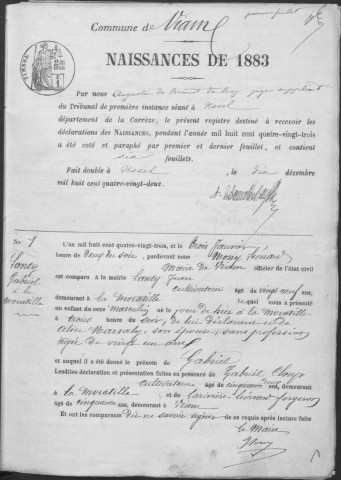 Commune de Viam
NAISSANCES DE 1883
TIMBRE
Par nous Augustin
du Tribunal de première instance séant à Ussel
département de la Corrèze, le présent registre destiné à recevoir les
déclarations des NAISSANCES, pendant l'année mil huit cent quatre-vingt-trois
a été coté et paraphé par premier et dernier feuillet, et contient
six feuillets.
Fait double à Ussel le dix décembre
mil huit cent quatre-vingt-deux.
No 1
Santy
Gabriel
à la
Moratille
L'an mil huit cent quatre-vingt-trois, et le trois Janvier
heure de deux du soir, pardevant nous Mony Léonard
Maire de Viam officier de l'état civil
est comparu à la mairie Santy Jean
cultivateur âgé de vingt neuf ans
demeurant à la Moratille lequel nous a présenté
un enfant du sexe Masculin né le jour de hier à la Moratille
à trois heure du soir, de lui déclarant et de
Marsaly, son épouse, sans profession
âgée de vingt un ans
et auquel il a été donné le prénom de Gabriel
Lesdites déclaration et présentation faites en présence de Gabriel
cultivateur âgé de cinquante deux ans, demeurant
à la Moratille et de Léonard forgeron
âgé de cinquante ans, demeurant à Viam
Et ont les comparants dit ne savoir signer de ce requis après lecture faite
Le Maire
Mony